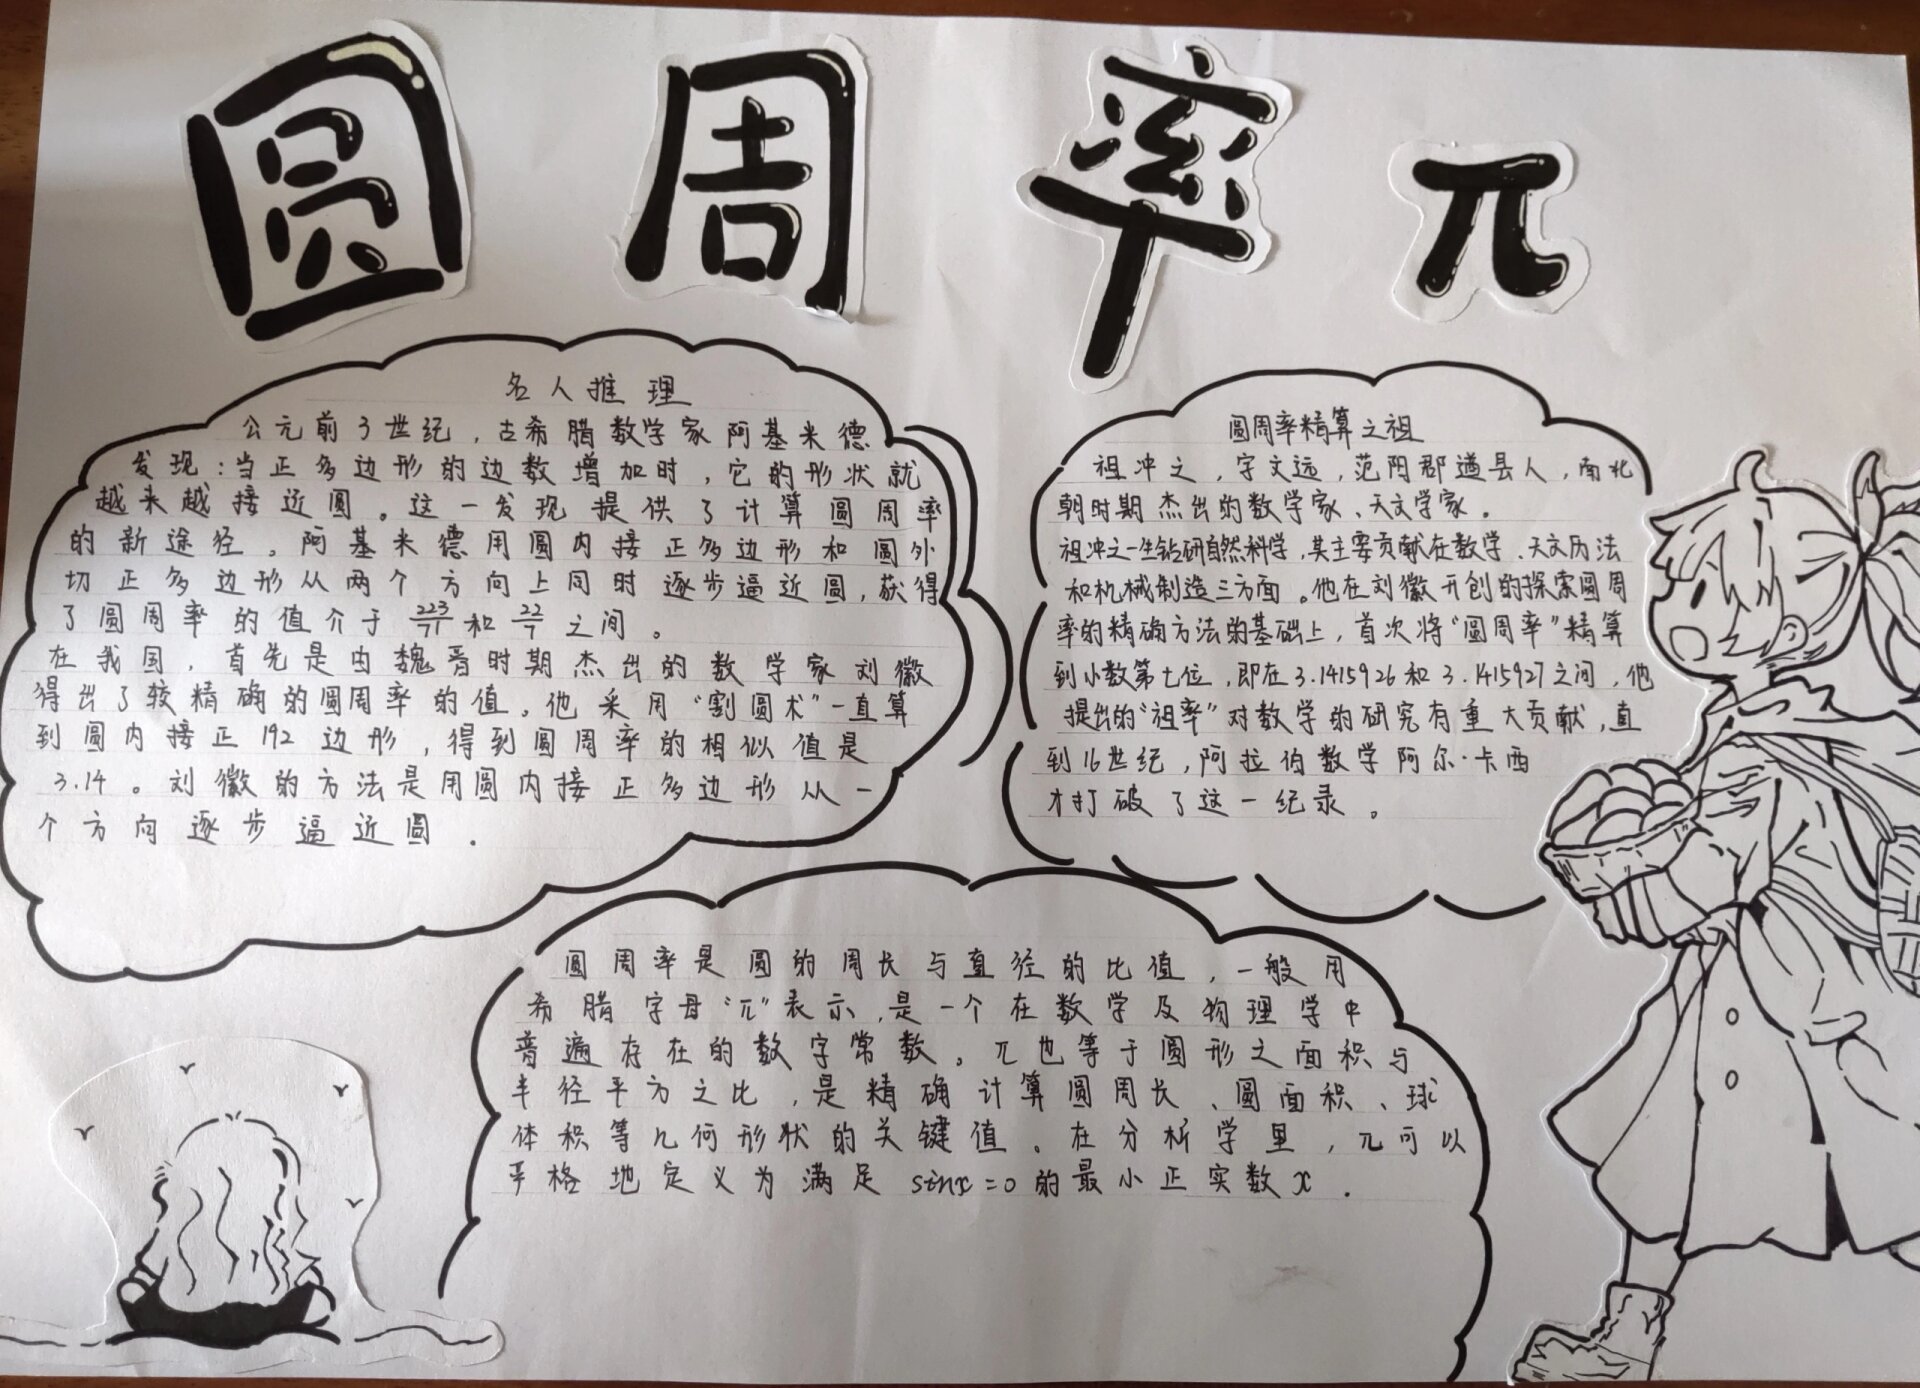 圆周率π
名人推理
公元前3世纪，古希腊数学家阿基米德
发现：当正多边形的边数增加时，它的形状就
越来越接近圆。这一发现提供了计算圆周率
的新途径。阿基米德用圆内接正多边形和圆外
切正多边形从两个方向上同时逐步逼近圆，获得
了圆周率的值介于223/71和22/7之间。
在我国，首先是由魏晋时期杰出的数学家刘徽
得出了较精确的圆周率的值。他采用“割圆术”一直算
到圆内接正192边形，得到圆周率的相似值是
3.14。刘徽的方法是用圆内接正多边形从一
个方向逐步逼近圆．
圆周率精算之祖
祖冲之，字文远，范阳郡遒县人，南北
朝时期杰出的数学家、天文学家。
祖冲之一生钻研自然科学，其主要贡献在数学、天文历法
和机械制造三方面。他在刘徽开创的探索圆周
率的精确方法的基础上，首次将“圆周率”精算
到小数第七位，即在3.1415926和3.1415927之间，他
提出的“祖率”对数学的研究有重大贡献，直
到16世纪，阿拉伯数学阿尔·卡西
才打破了这一纪录。
圆周率是圆的周长与直径的比值，一般用
希腊字母“π”表示，是一个在数学及物理学中
普遍存在的数字常数。π也等于圆形之面积与
半径平方之比，是精确计算圆周长、圆面积、球
体积等几何形状的关键值。在分析学里，π可以
严格地定义为满足sinx=0的最小正实数x．